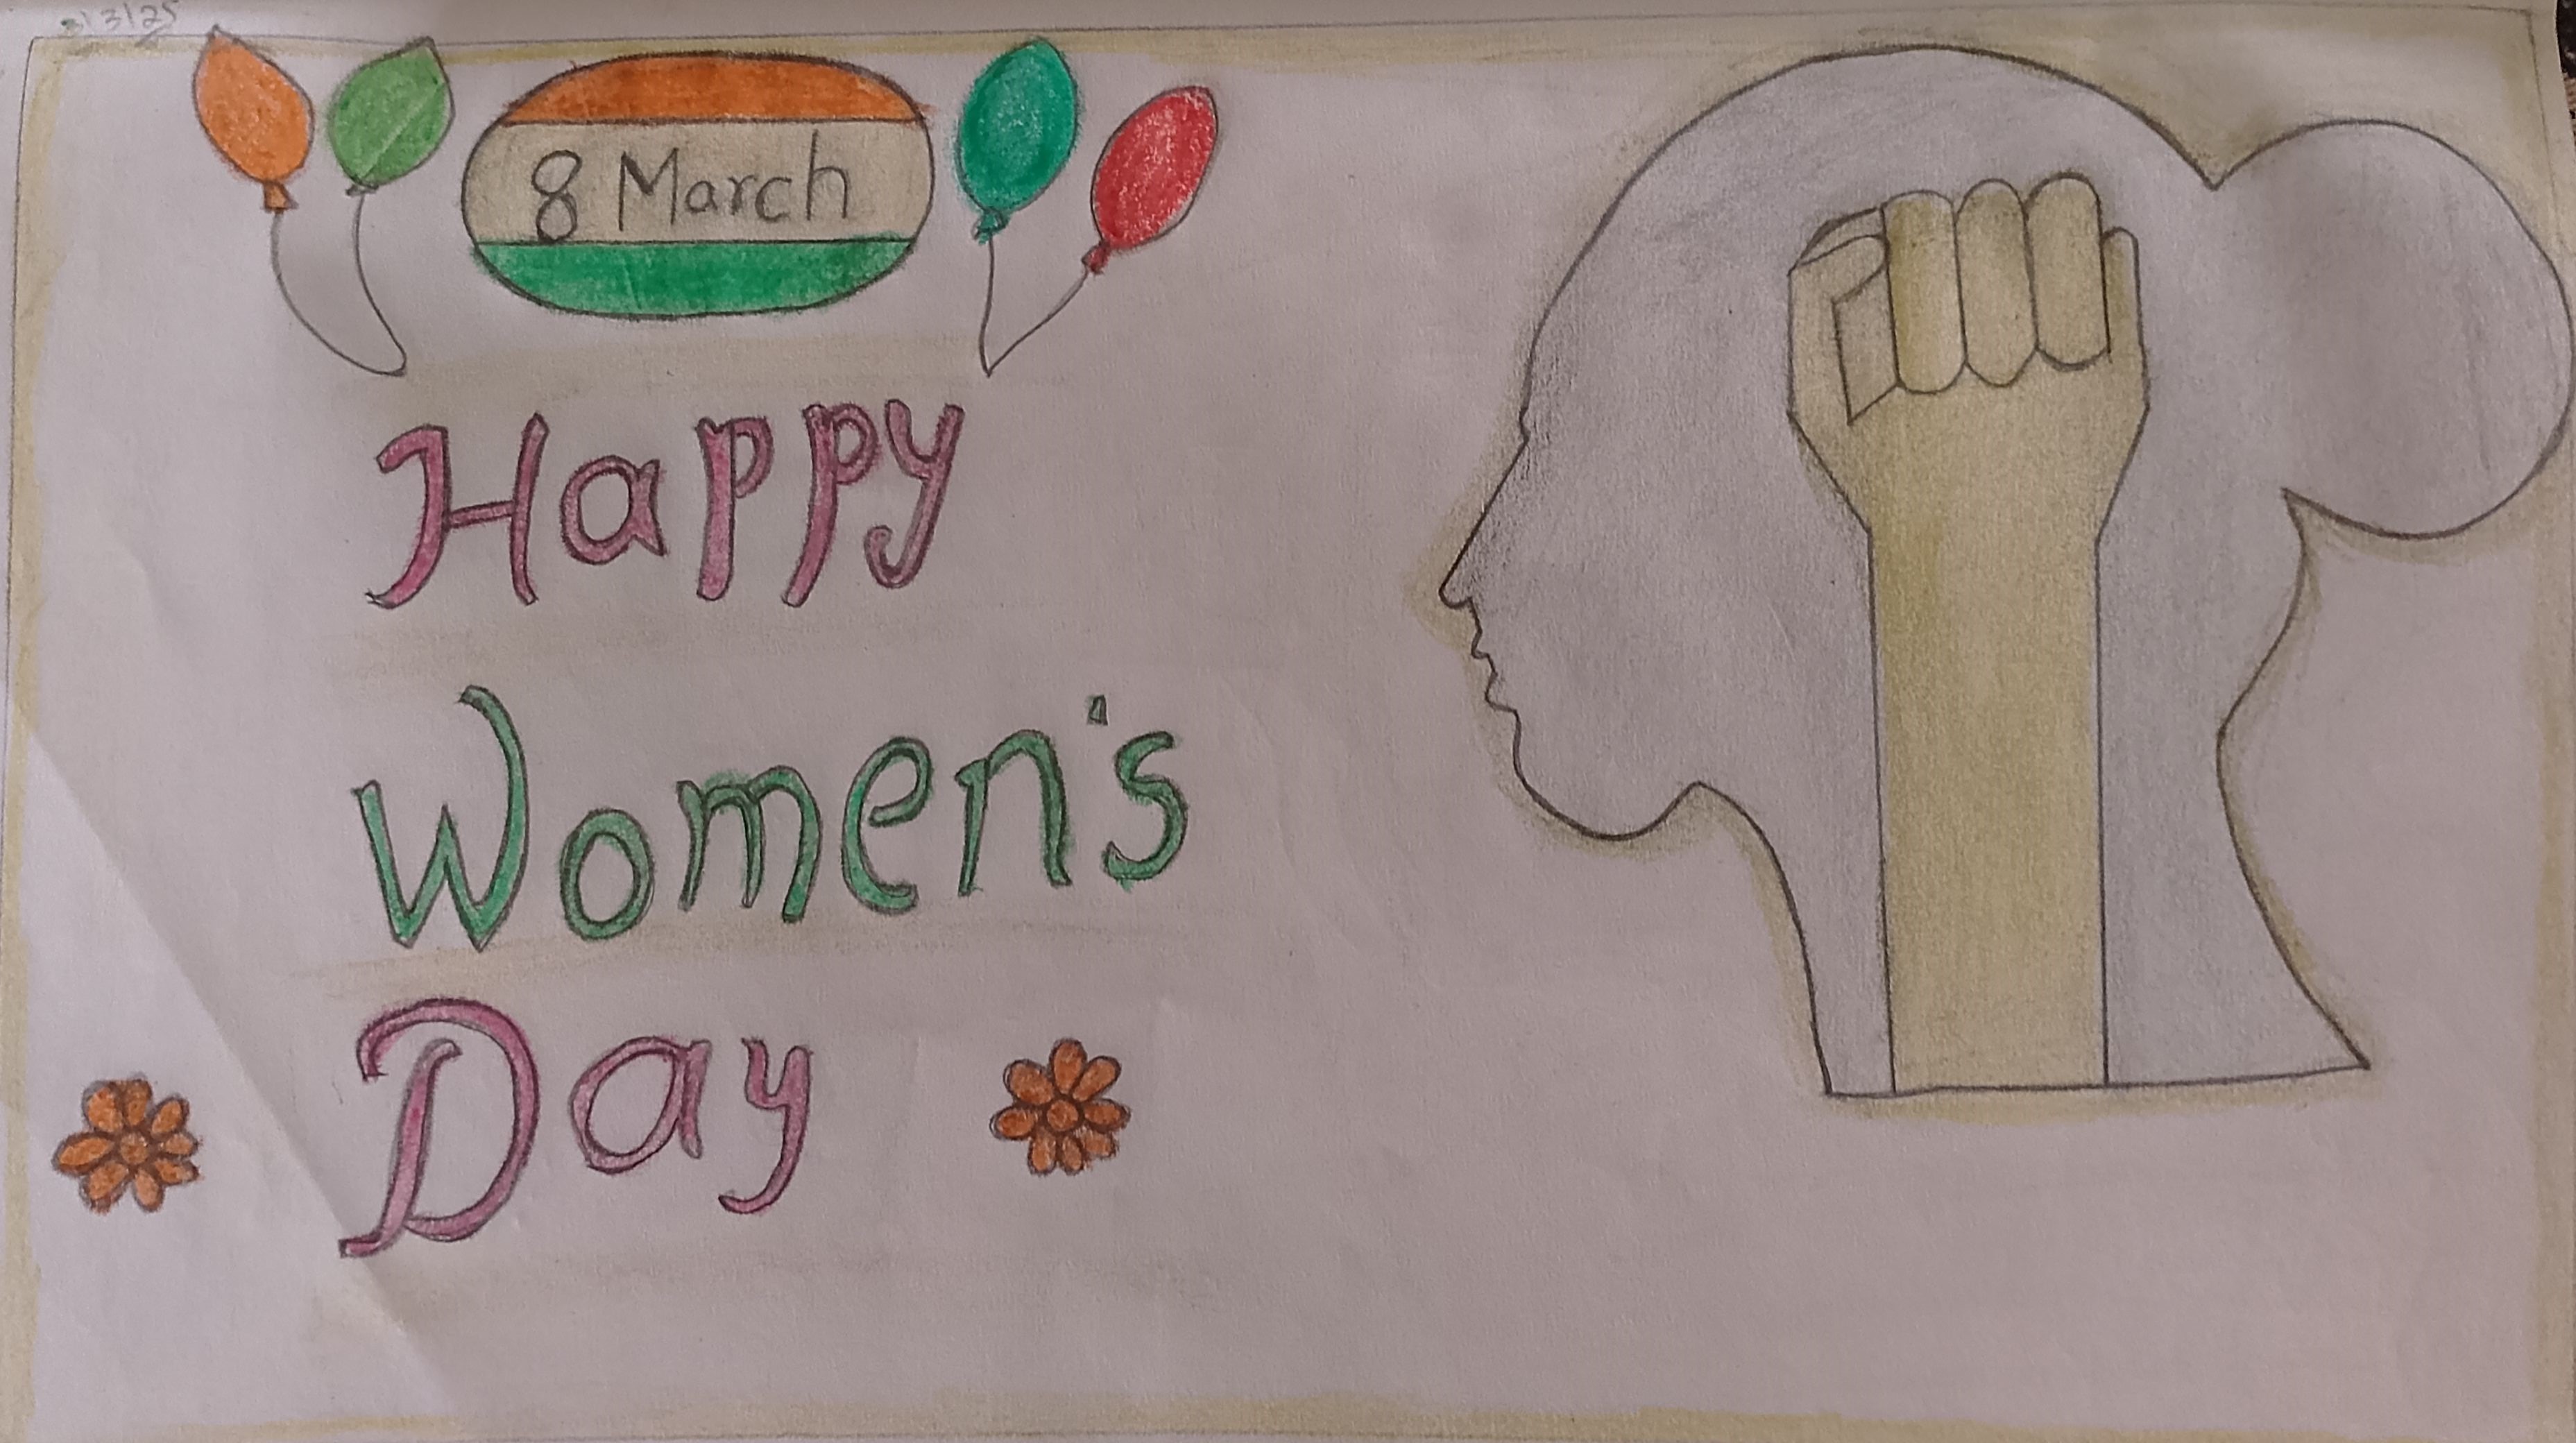 8 March
Happy
Women's
Day